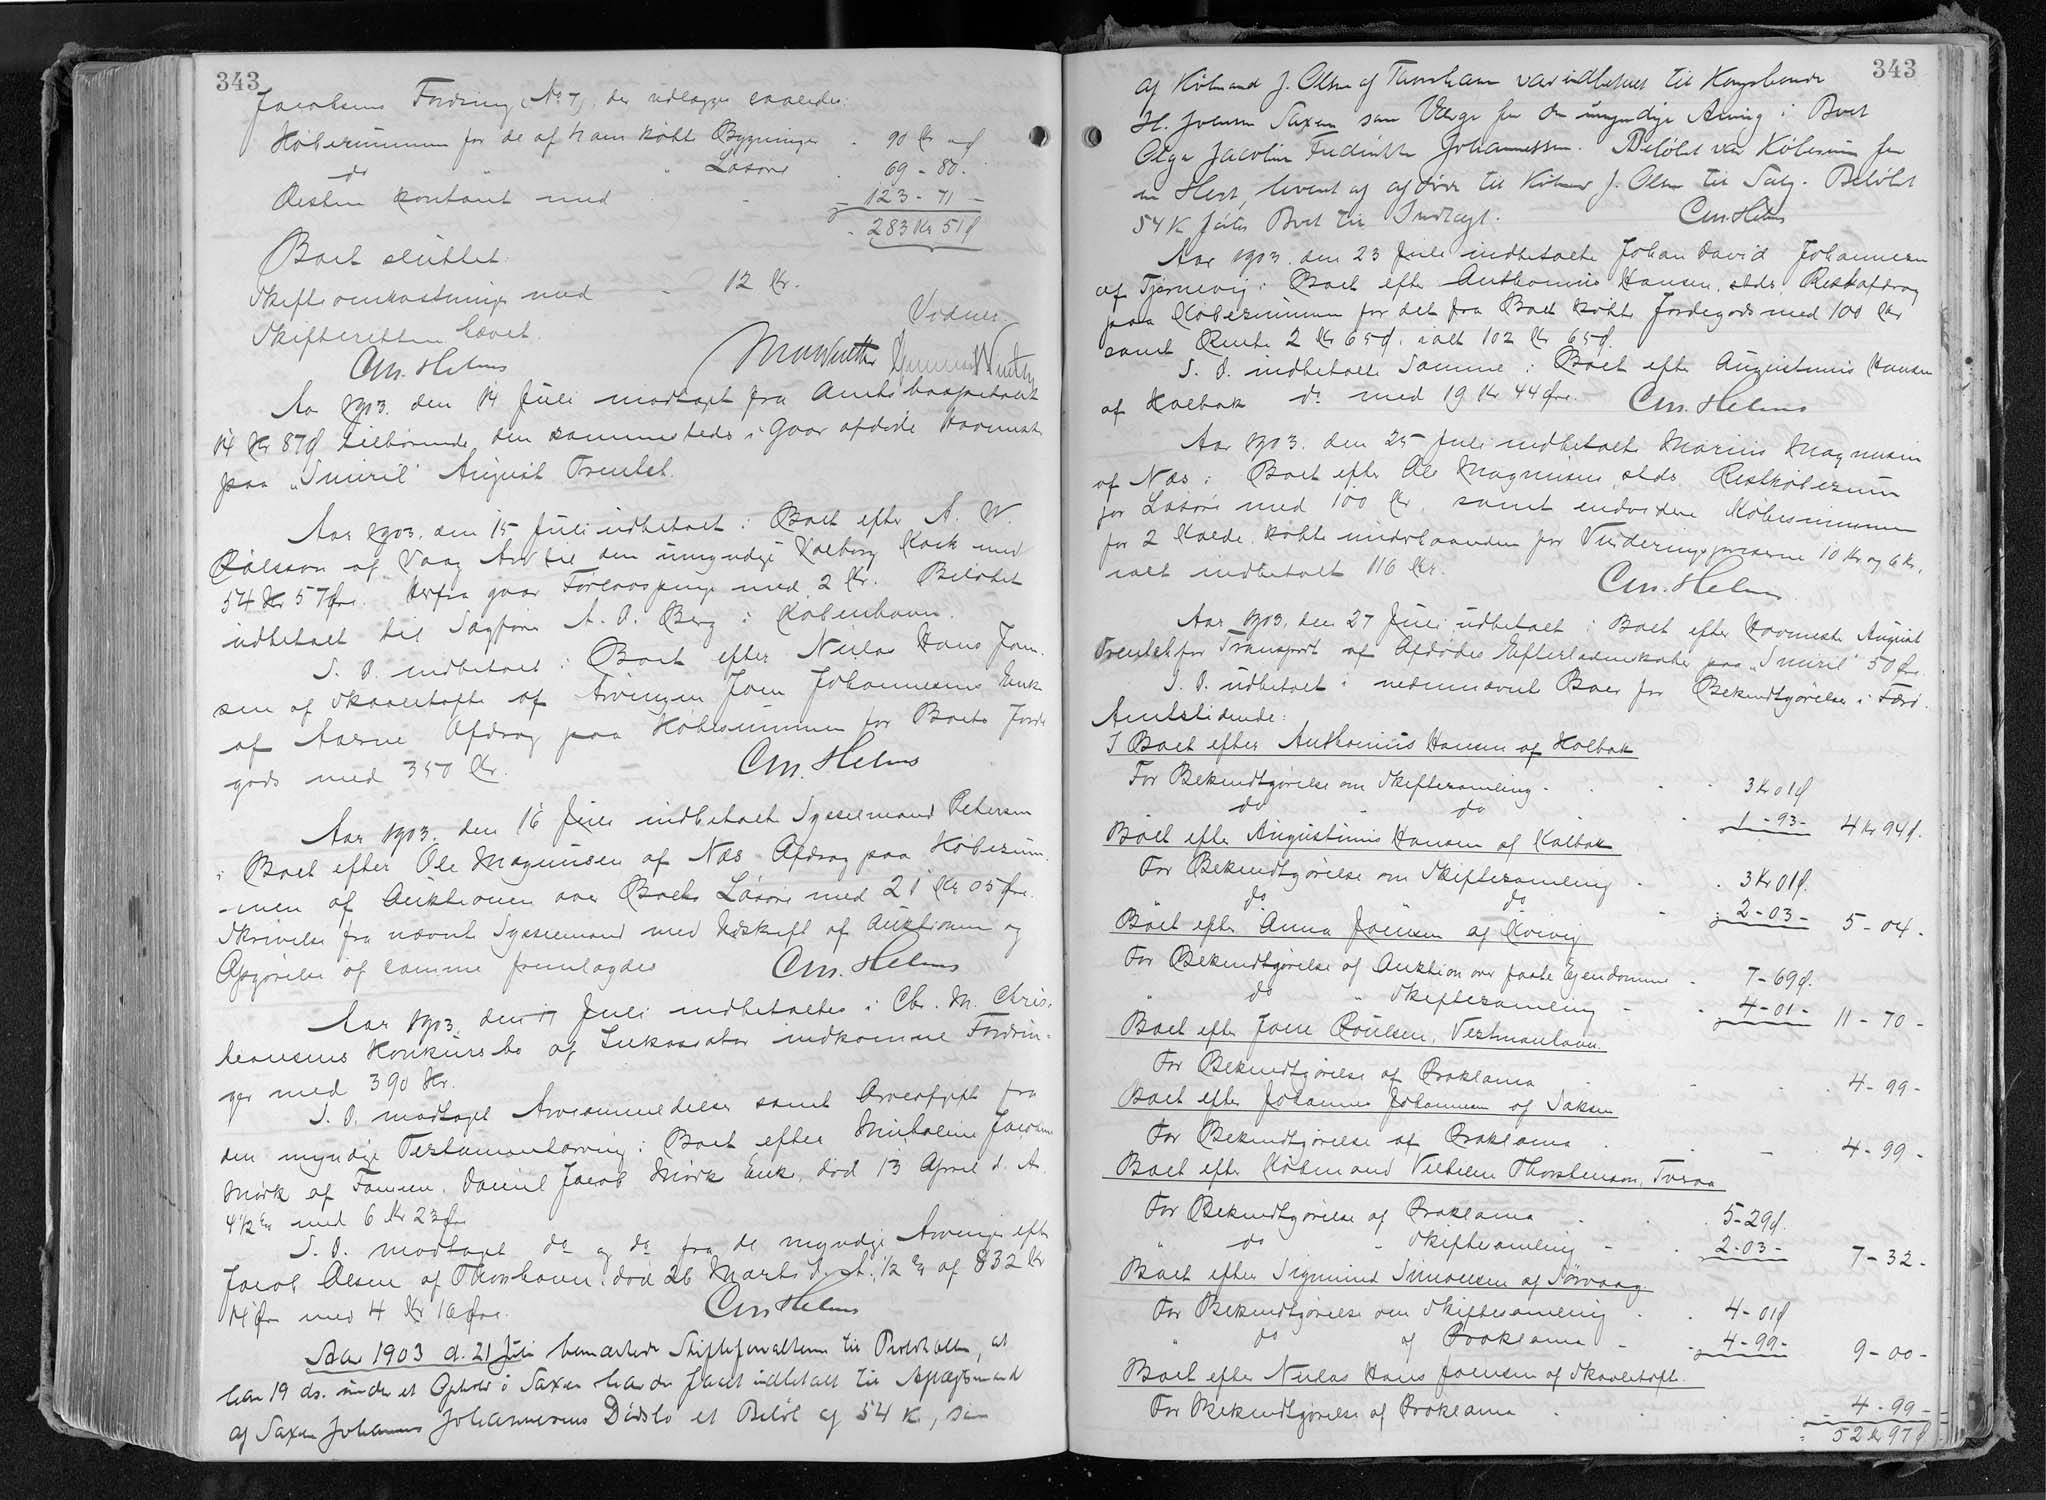 343
Jacobsens Fordring (No 7), der udlægges saaledes:
Köbesummen for de af ham köbte Bygninger . 90 Kr " ø
do " Lösøre . 69 - 80 -
Resten kontant med . - 123 - 71 -
283 Kr 51 ø
Boet sluttet.
Skifteomkostninger med - 12 Kr.
Skifteretten hævet.
Vidner
Chr. Helms
Aar 1903. den 14 Juli modtaget fra Amtshospitalet
14 Kr 87 ø tilhörende den sammesteds i Gaar afdøde Hovmester
paa "Smiril" August Trentel.
Aar 1903. den 15 Juli udbetalt i Boet efter A. W.
af Vaag Arv til den umyndige Valborg Koch med
54 Kr 57 Øre. Herfra gaar Forlovspenge med 2 Kr. Beløbet
udbetalt til Sagfører A. P. Berg i Köbenhavn.
S. D. indbetalt i Boet efter Niclas Hans Joen-
sen af Skaaletofte af Arvingen Joen Johannesens Enke
af Aarne Afdrag paa Köbesummen for Boets Jorde-
gods med 350 Kr. Chr. Helms
Aar 1903. den 16 Juli indbetalt Sysselmand Petersen
i Boet efter Ole Magnusen af Næs Afdrag paa Köbesum-
-men af Auktionen over Boets Lösøre med 21 Kr 05 Øre.
Skrivelse fra nævnte Sysselmand med Udskrift af Auktionen og
Opgörelse af samme fremlagdes Chr. Helms
Aar 1903. den 17 Juli indbetaltes i Chr. M. Chris-
tiansens Konkursbo af Inkassator indkomne Fordrin-
ger med 390 Kr.
S. D. modtaget Arveanmeldelse samt Arveafgift fra
den myndige Testamentarving i Boet efter Michaline Jacobine
Mörk af Famien, Daniel Jacob Mörks Enke, död 13 April d. A.
4 1/2 % med 6 Kr 23 Øre
S. D. modtaget do og do fra de myndige Arvinger efter
Jacob Olsen af Thorshavn, död 26 Marts d. A. 1/2 % af 832 Kr
14 Øre med 4 Kr 16 Øre. Chr. Helms
Aar 1903 d. 21 Juli bemærkede Skifteforvalteren til Protokollen, at
han 19 ds. under et Ophold i Saxen havde faaet indbetalt til
af Saxen Johannes Johannesens Dödsbo et Belöb af 54 K, som
343
af Köbmand J. Olsen af Thorshavn var indbetalt til Kongsbonde
H. Joensen Saxen som Værge for den umyndige Arving i Boet
Olga Jacobine Fredrikke Johannessen. Belöbet var Köbesum for
en Hest, levent af afdøde til Köbmd J. Olsen til Salg. Belöbet
54 K föres Boet til Indtægt. Chr. Helms
Aar 1903. den 23 Juli indbetalte Johan David Johannesen
af Tjörnevig i Boet efter Anthonius Hansen, sdts. Restafdrag
paa Köbesummen for det fra Boet köbte Jordegods med 100 Kr
samt Rente 2 Kr 65 ø. ialt 102 Kr 65 ø.
S. D. indbetalte Samme i Boet efter Augustinus Hansen
af Kalbak do med 19 Kr 44 Øre. Chr. Helms
Aar 1903. den 25 Juli indbetalt Marius Magnusen
af Næs i Boet efter Ole Magnusen, sdts. Restköbesum
for Lösøre med 100 Kr. samt endvidere Köbesummen
for 2 köbte underhaanden for Vurderingspriserne 10 Kr og 6 Kr,
ialt indbetalt 116 Kr. Chr. Helms
Aar 1903. den 27 Juli udbetalt i Boet efter Hovmester August
Trentel for Transport af Afdødes Efterladenskaber paa "Smiril" 50 Øre
S. D. udbetalt i nedennævnte Boer for Bekendtgörelse i Færö
Amtstidende:
I Boet efter Anthonius Hansen af Kolbak
For Bekendtgörelse om Skiftesamling . . . 3 Kr 01 ø
do - do . 1 - 93 - 4 Kr 94 ø.
Boet efter Augustinus Hansen af Kalbak
For Bekendtgörelse om Skiftesamling . . 3 Kr 01 ø.
do do - 2 - 03 - 5 - 04 -
Boet efter Anna Joensen af Kvivig
For Bekendtgörelse af Auktion over faste Ejendomme . 7 - 69 ø.
" do " Skiftesamling - . 4 - 01 - 11 - 70 -
Boet efter Joen Poulsen, Vestmanhavn.
For Bekendtgörelse af Proklama . - . 4 - 99 -
Boet efter Johannes Johannesen af Saksen
For Bekendtgörelse af Proklama . - . 4 - 99 -
Boet efter Köbmand Vilhelm Thorsteinson, Tveraa
For Bekendtgörelse af Proklama . . . 5 - 29 ø.
" do - Skiftesamling - . 2 - 03 - 7 - 32 -
Boet efter Sigmund Simonsen af Sörvaag
For Bekendtgörelse om Skiftesamling . . 4 - 01 ø
" do af Proklama - . 4 - 99 - 9 - 00 -
Boet efter Niclas Hans Joensen af Skaaletoft.
For Bekendtgörelse af Proklama . . . . 4 - 99 -
52 Kr 97 ø.